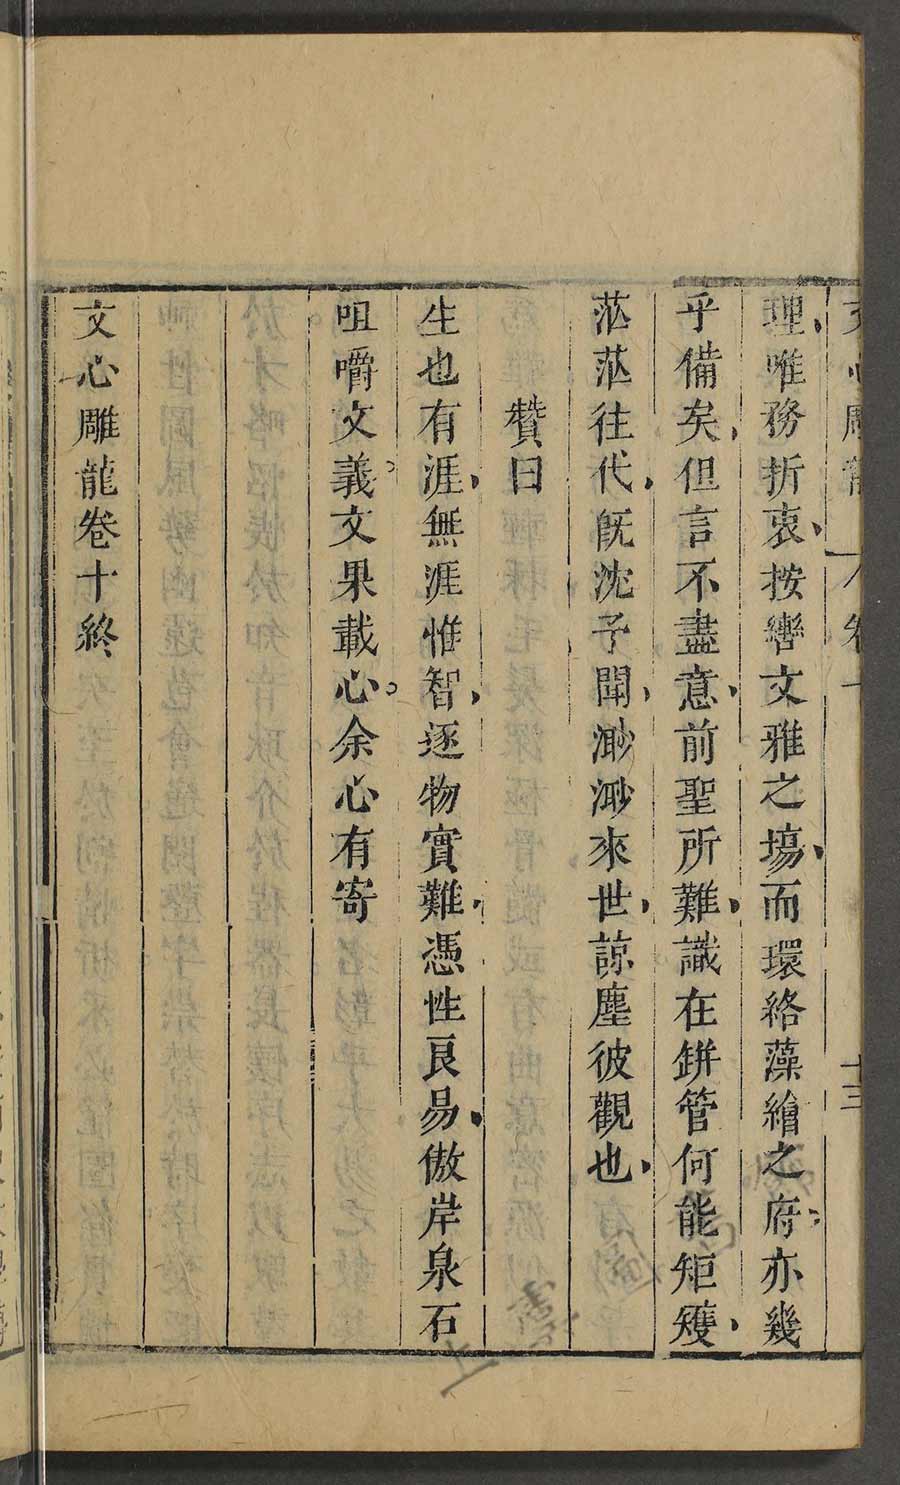 文心雕龍 卷十 十三
理唯務折衷按轡文雅之塲而環絡藻繪之府亦幾
乎備矣但言不盡意前聖所難識在缾管何能矩矱
茫茫往代旣沈予聞渺渺來世諒塵彼觀也
贊曰
生也有涯無涯惟智逐物實難憑性良易傲岸泉石
咀嚼文義文果載心余心有寄
文心雕龍卷十終